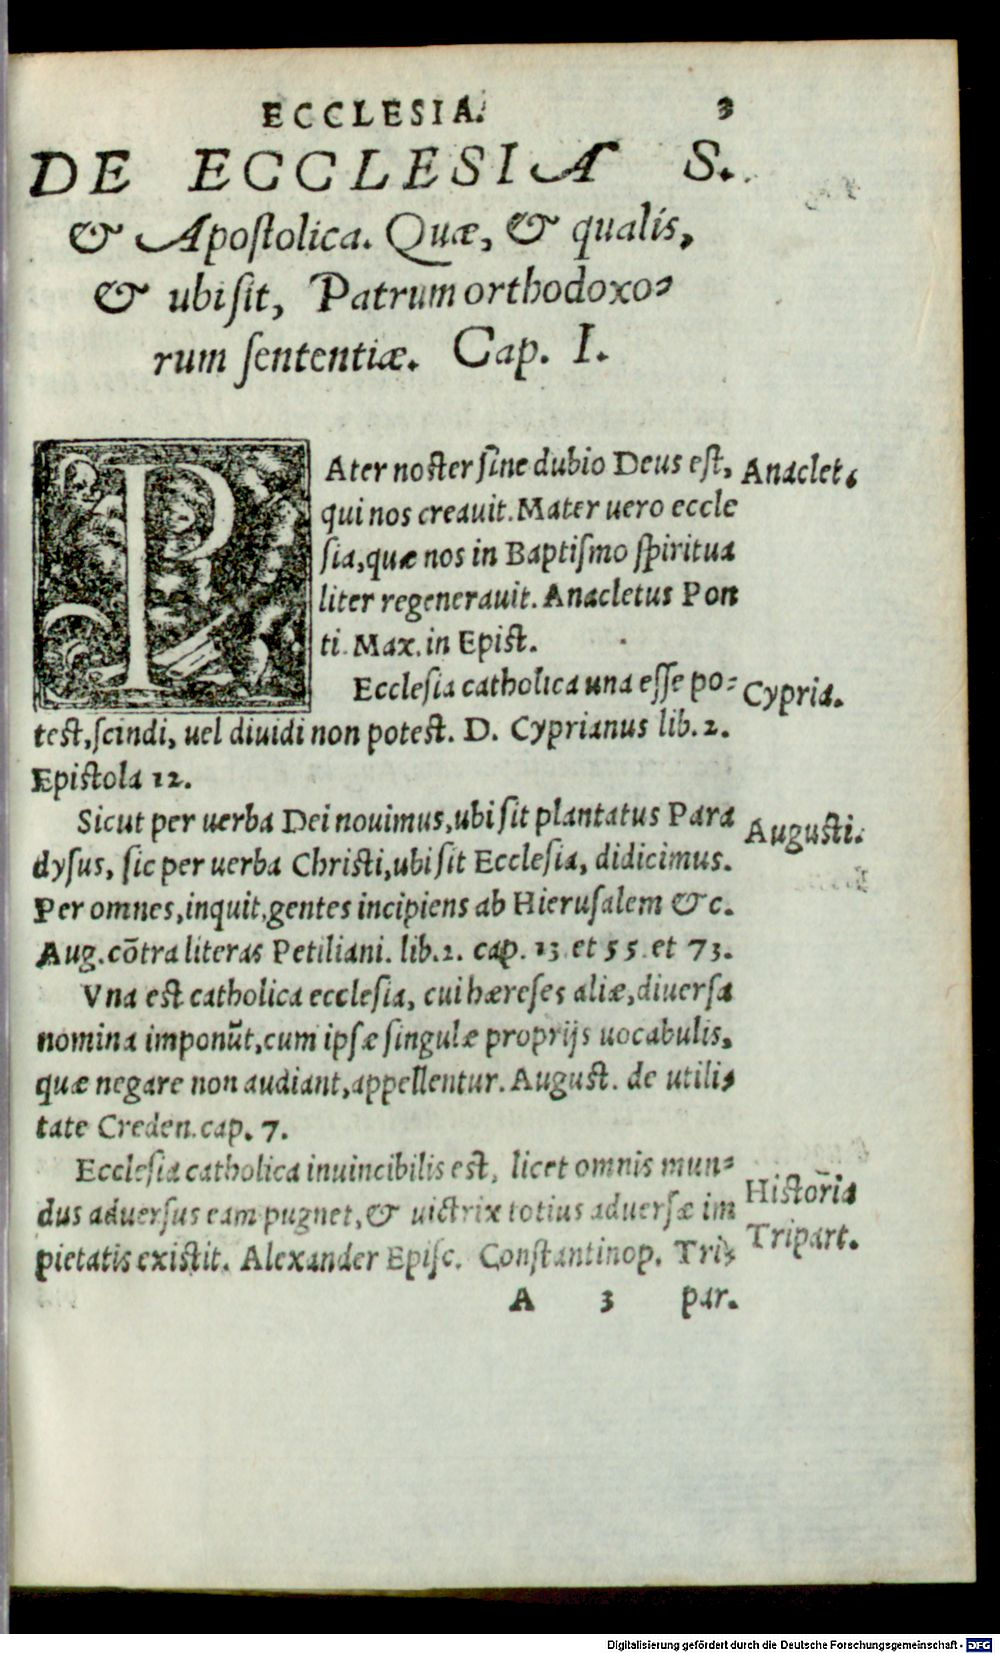 ECCLESIA. 3
DE ECCLESIA S.
& Apostolica. Quæ, & qualis,
& ubi sit, Patrum orthodoxo-
rum sententiæ. Cap. I.
PAter noster sine dubio Deus est, Anaclet.
qui nos creauit. Mater uero eccle
sia, quæ nos in Baptismo spiritua
liter regenerauit. Anacletus Pon
ti. Max. in Epist.
Ecclesia catholica una esse po- Cypria.
test, scindi, uel diuidi non potest. D. Cyprianus lib. 2.
Epistola 12.
Sicut per uerba Dei nouimus, ubi sit plantatus Para Augusti.
dysus, sic per uerba Christi, ubi sit Ecclesia, didicimus.
Per omnes, inquit, gentes incipiens ab Hierusalem &c.
Aug. cōtra literas Petiliani. lib. 2. cap. 13 et 55 et 73.
Vna est catholica ecclesia, cui hæreses aliæ, diuersa
nomina imponūt, cum ipsæ singulæ proprijs uocabulis,
quæ negare non audiant, appellentur. August. de utili-
tate Creden. cap. 7.
Ecclesia catholica inuincibilis est, licet omnis mun- Historia
dus aduersus eam pugnet, & uictrix totius aduersæ im Tripart.
pietatis existit. Alexander Episc. Constantinop. Tri-
A 3 par.
Digitalisierung gefördert durch die Deutsche Forschungsgemeinschaft - DFG